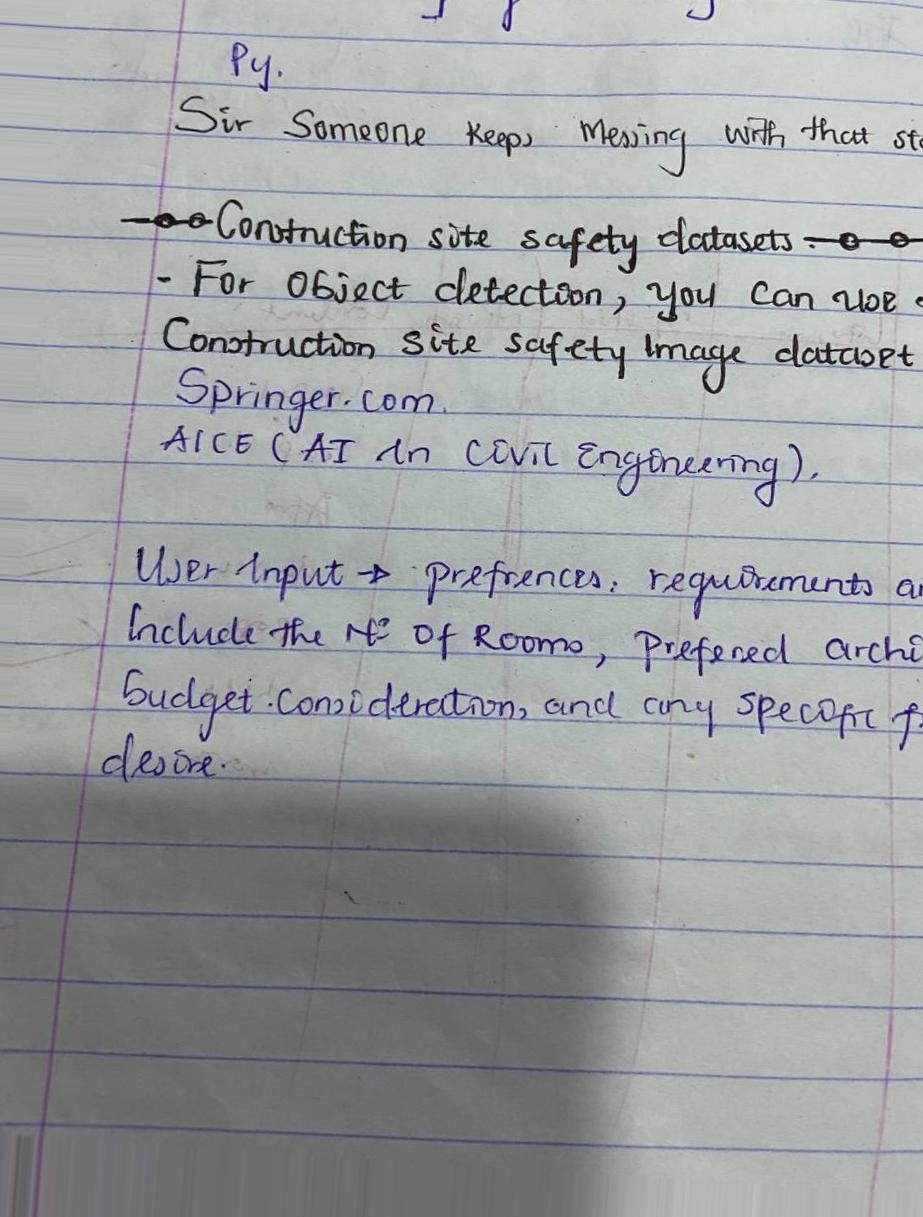 Py.
Sir Someone keeps Messing with that
Construction site safety datasets
- For Object detection, you can use
Construction site safety Image dataset
Springer.com.
AICE (AI in Civil Engineering).
User Input → prefrences, requirements
Include the No of Rooms, Prefered
budget consideration, and any specific
desire.